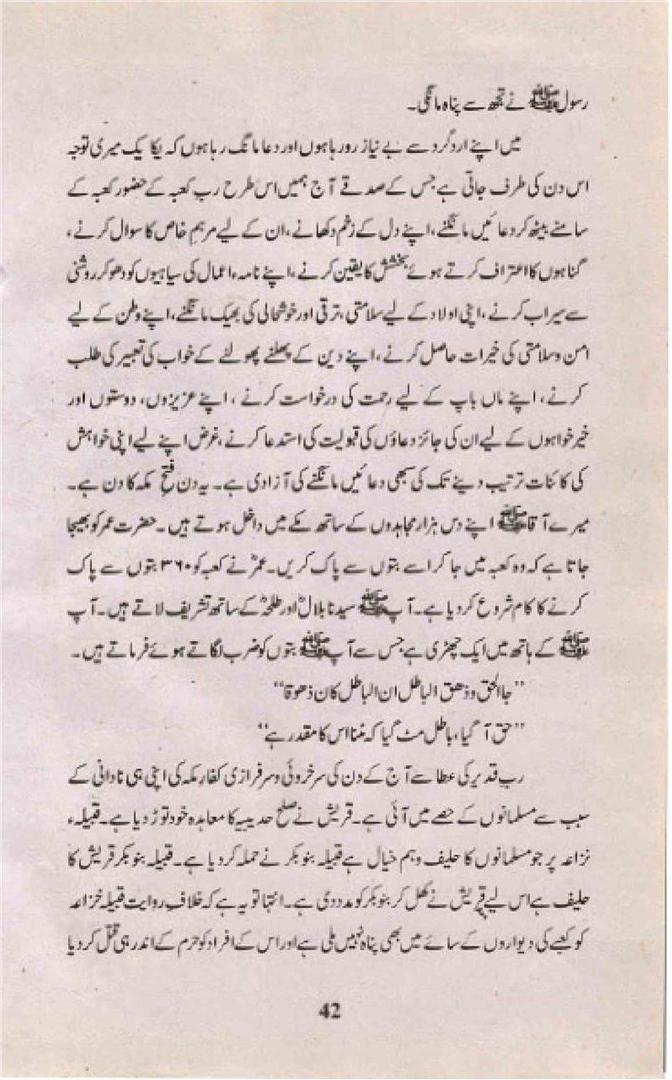 رسول ﷺ نے تجھ سے پناہ مانگی۔
میں اپنے اردگرد سے بے نیاز رو رہا ہوں اور دعا مانگ رہا ہوں کہ یکایک میری توجہ
اس دن کی طرف جاتی ہے جس کے صدقے آج ہمیں اس طرح ربِ کعبہ کے حضور کعبہ کے
سامنے بیٹھ کر دعائیں مانگنے، اپنے دل کے زخم دکھانے، ان کے لیے مرہمِ خاص کا سوال کرنے،
گناہوں کا اعتراف کرتے ہوئے بخشش کا یقین کرنے، اپنے نامہء اعمال کی سیاہیوں کو دھو کر روشنی
سے سیراب کرنے، اپنی اولاد کے لیے سلامتی، ترقی اور خوشحالی کی بھیک مانگنے، اپنے وطن کے لیے
امن وسلامتی کی خیرات حاصل کرنے، اپنے دین کے پھلنے پھولنے کے خواب کی تعبیر کی طلب
کرنے، اپنے ماں باپ کے لیے رحمت کی درخواست کرنے، اپنے عزیزوں، دوستوں اور
خیرخواہوں کے لیے ان کی جائز دعاؤں کی قبولیت کی استدعا کرنے، غرض اپنے لیے اپنی خواہش
کی کائنات ترتیب دینے تک کی سبھی دعائیں مانگنے کی آزادی ہے۔ یہ دن فتحِ مکہ کا دن ہے۔
میرے آقا ﷺ اپنے دس ہزار مجاہدوں کے ساتھ مکے میں داخل ہوتے ہیں۔ حضرت عمر کو بھیجا
جاتا ہے کہ وہ کعبہ میں جا کر اسے بتوں سے پاک کریں۔ عمرؓ نے کعبہ کو ۳۶۰ بتوں سے پاک
کرنے کا کام شروع کر دیا ہے۔ آپ ﷺ سیدنا بلالؓ اور طلحہؓ کے ساتھ تشریف لاتے ہیں۔ آپ
ﷺ کے ہاتھ میں ایک چھڑی ہے جس سے آپ ﷺ بتوں کو ضرب لگاتے ہوئے فرماتے ہیں۔
”جاالحق وذھق الباطل ان الباطل کان ذھوقا“
”حق آ گیا، باطل مٹ گیا کہ مٹنا اس کا مقدر ہے“
ربِ قدیر کی عطا سے آج کے دن کی سرخروئی و سرفرازی کفارِ مکہ کی اپنی ہی نادانی کے
سبب سے مسلمانوں کے حصے میں آئی ہے۔ قریش نے صلح حدیبیہ کا معاہدہ خود توڑ دیا ہے۔ قبیلہء
نزاعہ پر جو مسلمانوں کا حلیف و ہم خیال ہے قبیلہ بنوبکر نے حملہ کر دیا ہے۔ قبیلہ بنوبکر قریش کا
حلیف ہے اس لیے قریش نے کھل کر بنوبکر کو مدد دی ہے۔ انتہا تو یہ ہے کہ خلافِ روایت قبیلہ خزاعہ
کو کعبے کی دیواروں کے سائے میں بھی پناہ نہیں ملی ہے اور اس کے افراد کو حرم کے اندر ہی قتل کر دیا
42